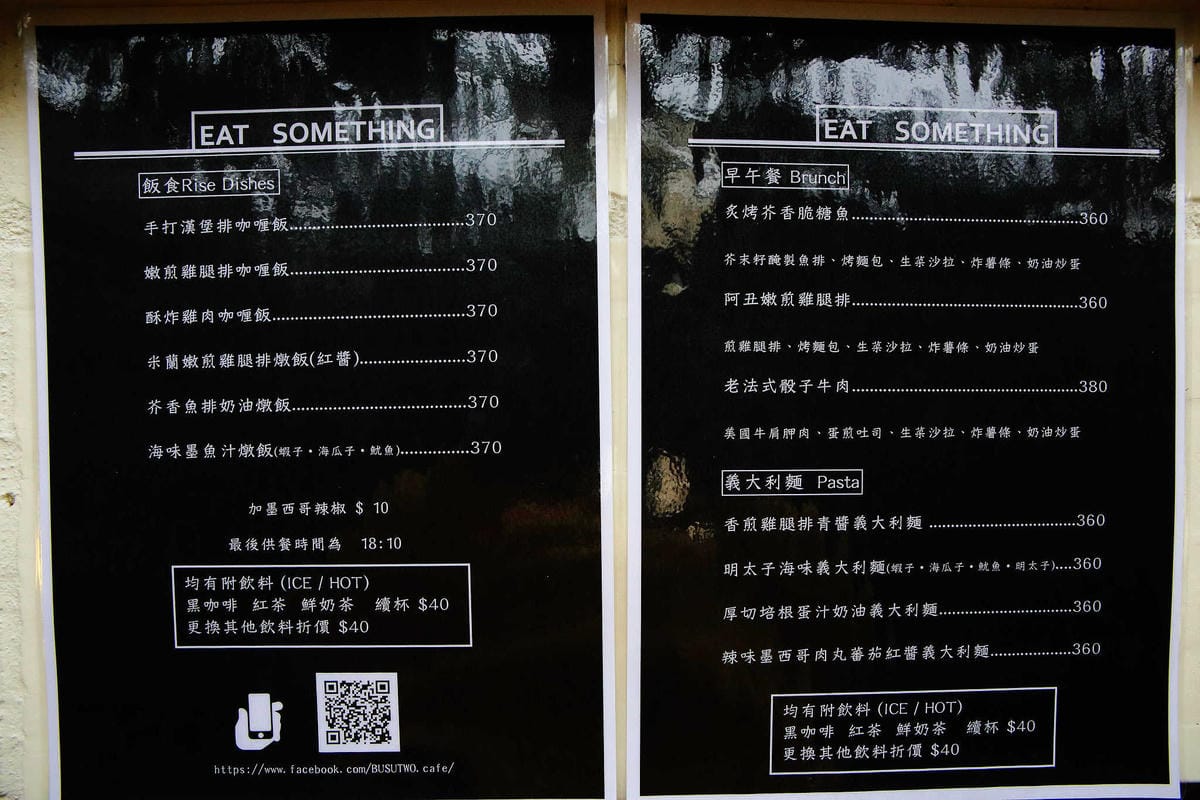 EAT SOMETHING
飯食Rise Dishes
手打漢堡排咖喱飯..............................370
嫩煎雞腿排咖喱飯..............................370
酥炸雞肉咖喱飯.................................370
米蘭嫩煎雞腿排燉飯(紅醬)..................370
芥香魚排奶油燉飯..............................370
海味墨魚汁燉飯(蝦子・海瓜子・魷魚)............370
加墨西哥辣椒 $ 10
最後供餐時間為 18:10
均有附飲料 (ICE / HOT)
黑咖啡 紅茶 鮮奶茶 續杯 $40
更換其他飲料折價 $40
https://www.facebook.com/BUSUTWO.cafe/
EAT SOMETHING
早午餐 Brunch
炙烤芥香脆糖魚.......................................360
芥末籽醃製魚排、烤麵包、生菜沙拉、炸薯條、奶油炒蛋
阿丑嫩煎雞腿排.......................................360
煎雞腿排、烤麵包、生菜沙拉、炸薯條、奶油炒蛋
老法式骰子牛肉.......................................380
美國牛肩胛肉、蛋煎吐司、生菜沙拉、炸薯條、奶油炒蛋
義大利麵 Pasta
香煎雞腿排青醬義大利麵 .........................360
明太子海味義大利麵(蝦子・海瓜子・魷魚・明太子)....360
厚切培根蛋汁奶油義大利麵.......................360
辣味墨西哥肉丸蕃茄紅醬義大利麵..............360
均有附飲料 (ICE / HOT)
黑咖啡 紅茶 鮮奶茶 續杯 $40
更換其他飲料折價 $40